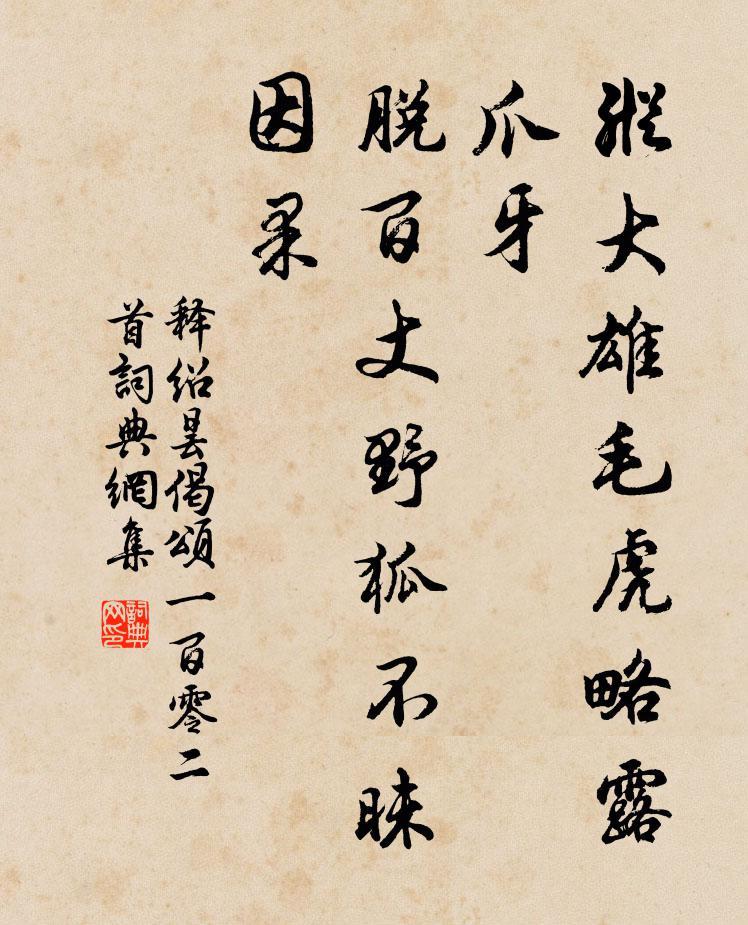 縱大雄毛虎略露
爪牙
脱百丈野狐不昧
因果
释绍昙偈頌一百零二
首詞典網集
詞典
网印